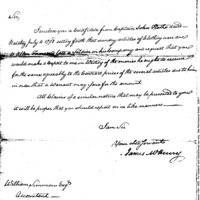 Sir
I enclose you a Certificate from Captain John Pratts dated
Wednesday July 6. 1798 setting forth that sundry articles of Clothing were due
to a Soldier in his Company and request that you
would make a report to me in writing of the monies he ought to receive
for the same agreeably to the contract prices of the several articles due to him
in order that a Warrant may issue for the amount.
All Claims of a similar nature that may be presented to you
it will be proper that you should report on in like manner.
I am Sir
Your obedt servant
James McHenry
William Simmons Esqr
Accountant